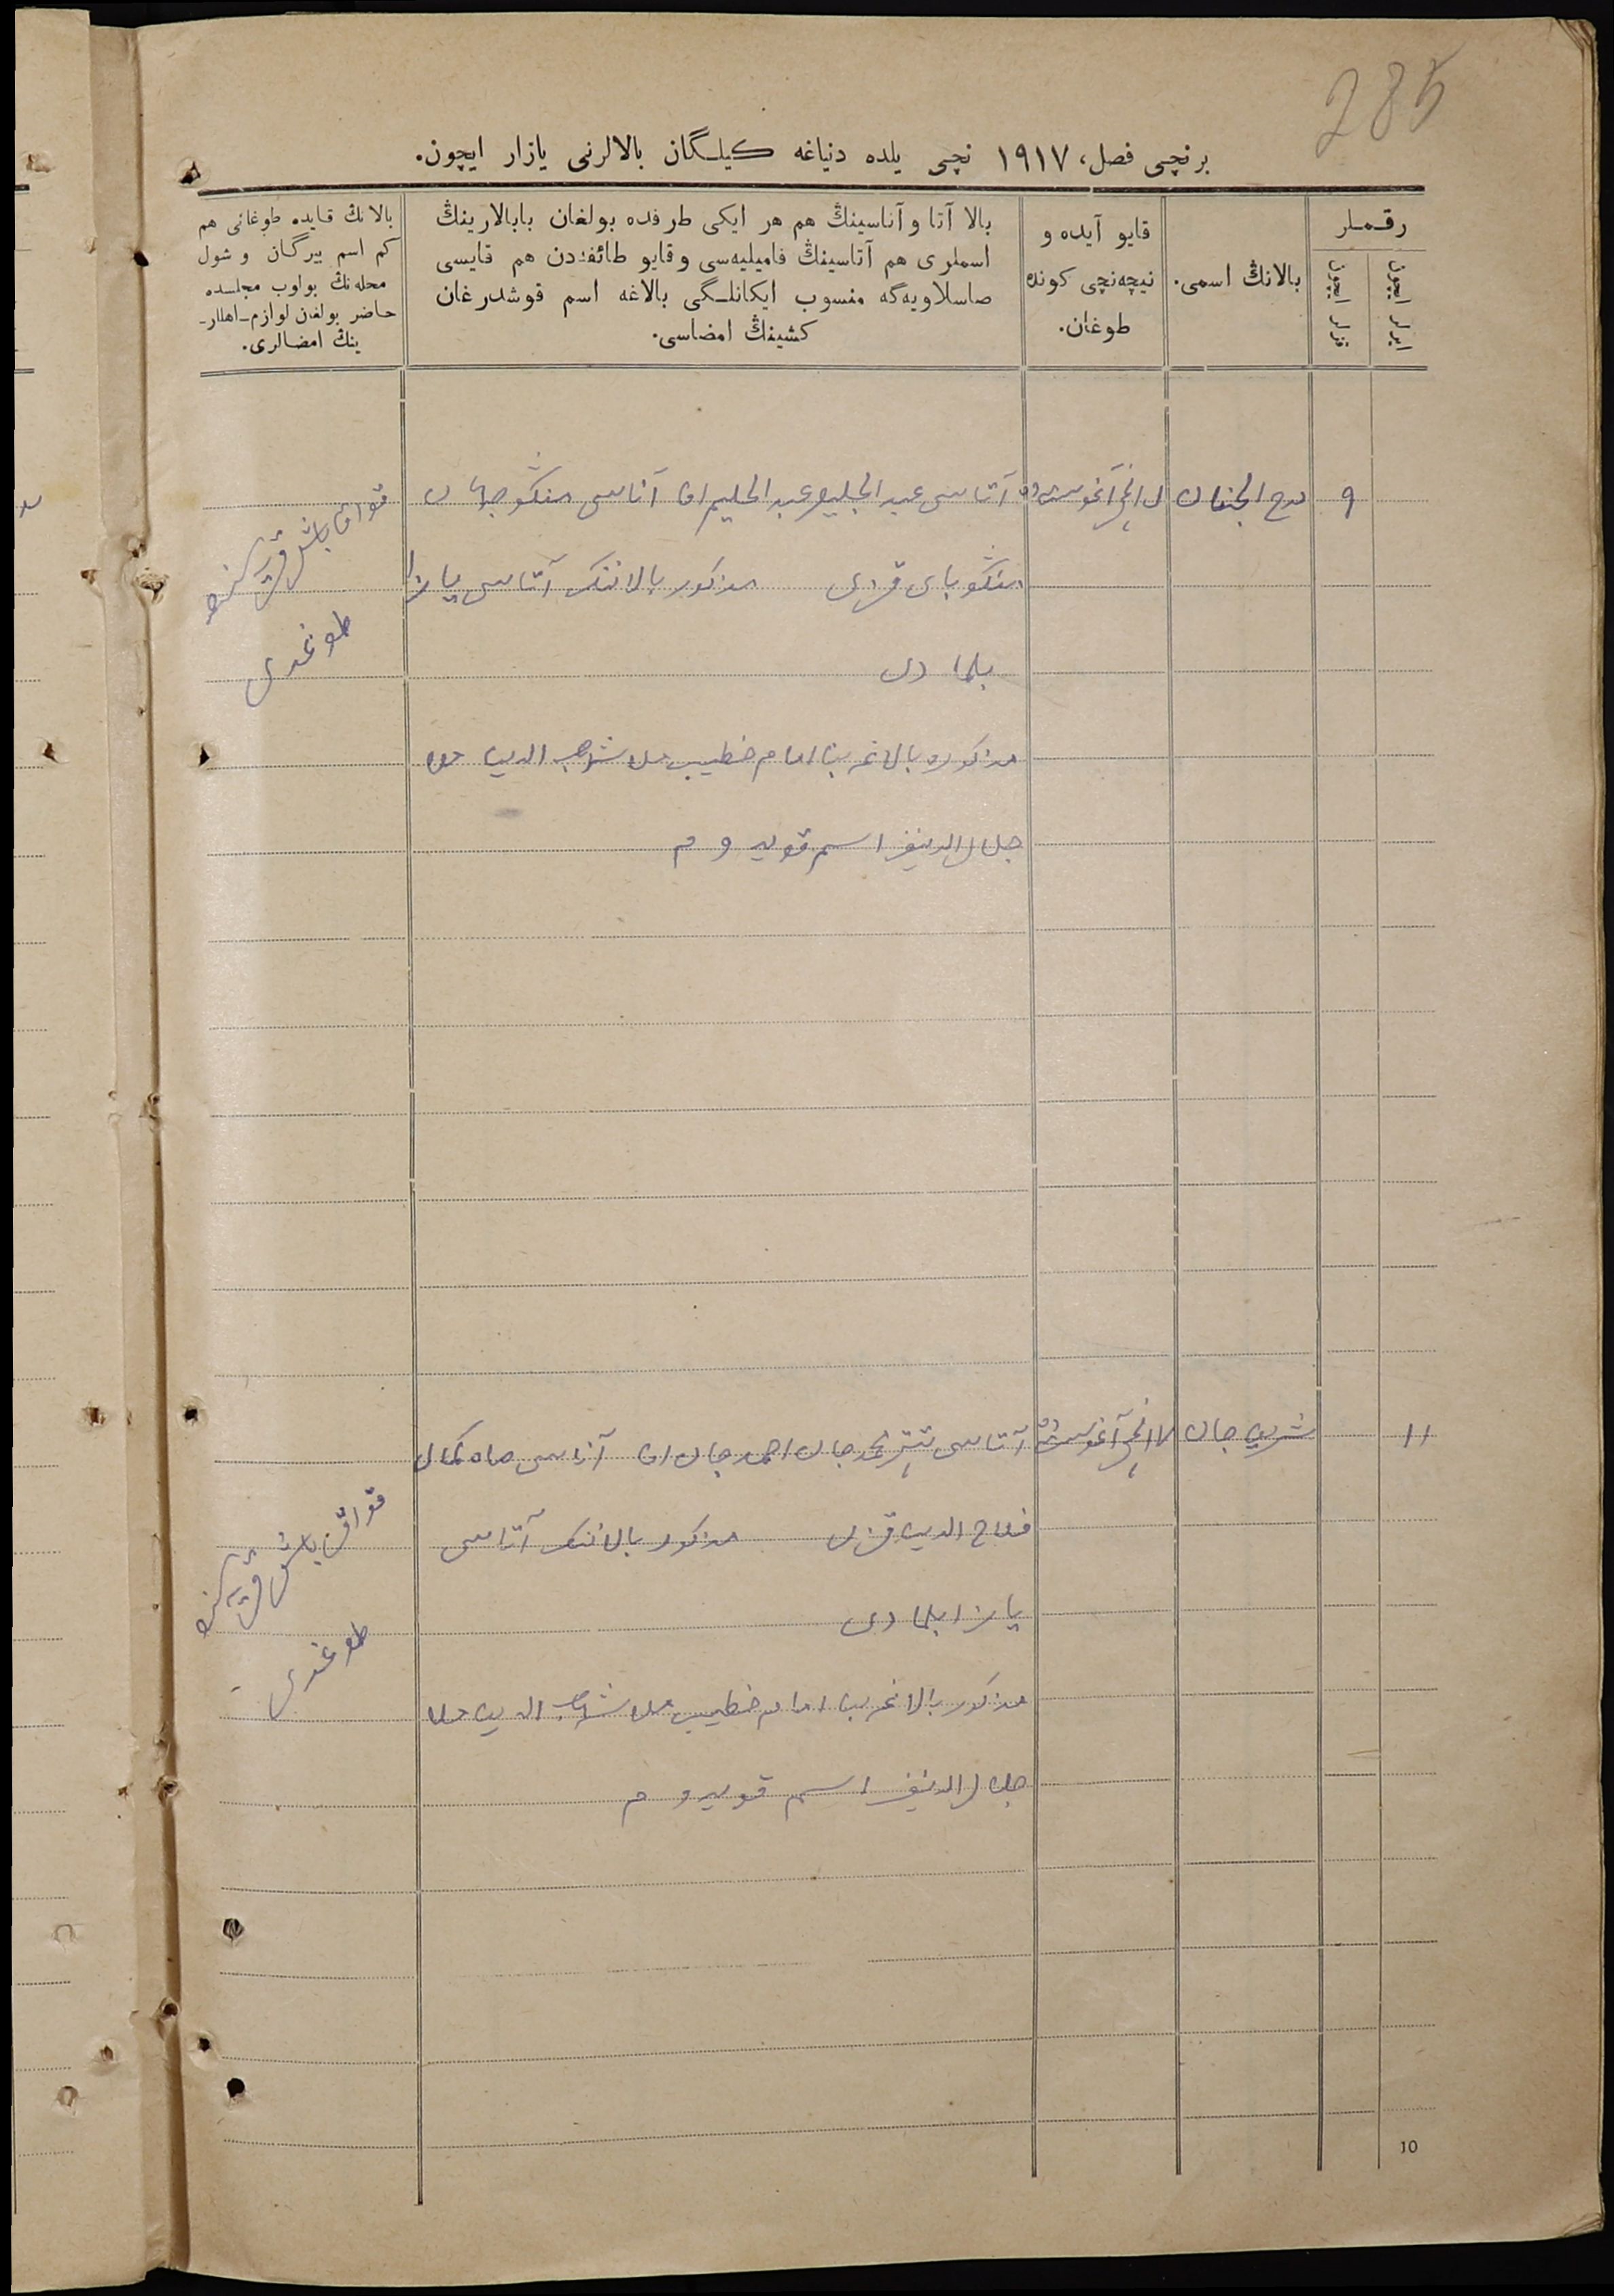 285
برنچی فصل، ١٩١٧ نچی یلده دنیاغه کیلـگان بالالرنی یازار ایچون.
رقـمـلر
ایرلر ایچون
قزلر ایچون
بالانڭ اسمی.
قایو آیده و
نیچه‌نچی کونده
طوغان.
بالا آتا و آناسینڭ هم هر ایکی طرفده بولغان بابالارینڭ
اسملری هم آتاسینڭ فامیلیه‌سی و قایو طائفه‌دن هم قایسی
صاسلاویه‌گه منسوب ایکانلـگی بالاغه اسم قوشدرغان
کشینڭ امضاسی.
بالانڭ قایده طوغانی هم
کم اسم بیرگان و شول
محله‌نڭ بولوب مجلسده
حاضر بولغان لوازم-اهللر-
ینڭ امضالری.
٩
آغوست
آتاسی عبد الجلیل عبد الحلیم اف آناسی
قزی مذکور بالاننک آتاسی یازا
بلمادی
مذکوره بالاغه بنا امام خطیب ملا شهاب الدین ملا
جلال الدینف اسم قویدوم
طوغدی
١١
شریف جان
آغوست
آتاسی جان احمد جان اف آناسی ماه کمال
فلاح الدین قزی مذکور بالاننک آتاسی
یازا بلمادی
مذکور بالاغه بنا امام خطیب ملا شهاب الدین ملا
جلال الدینف اسم قویدوم
طوغدی
10